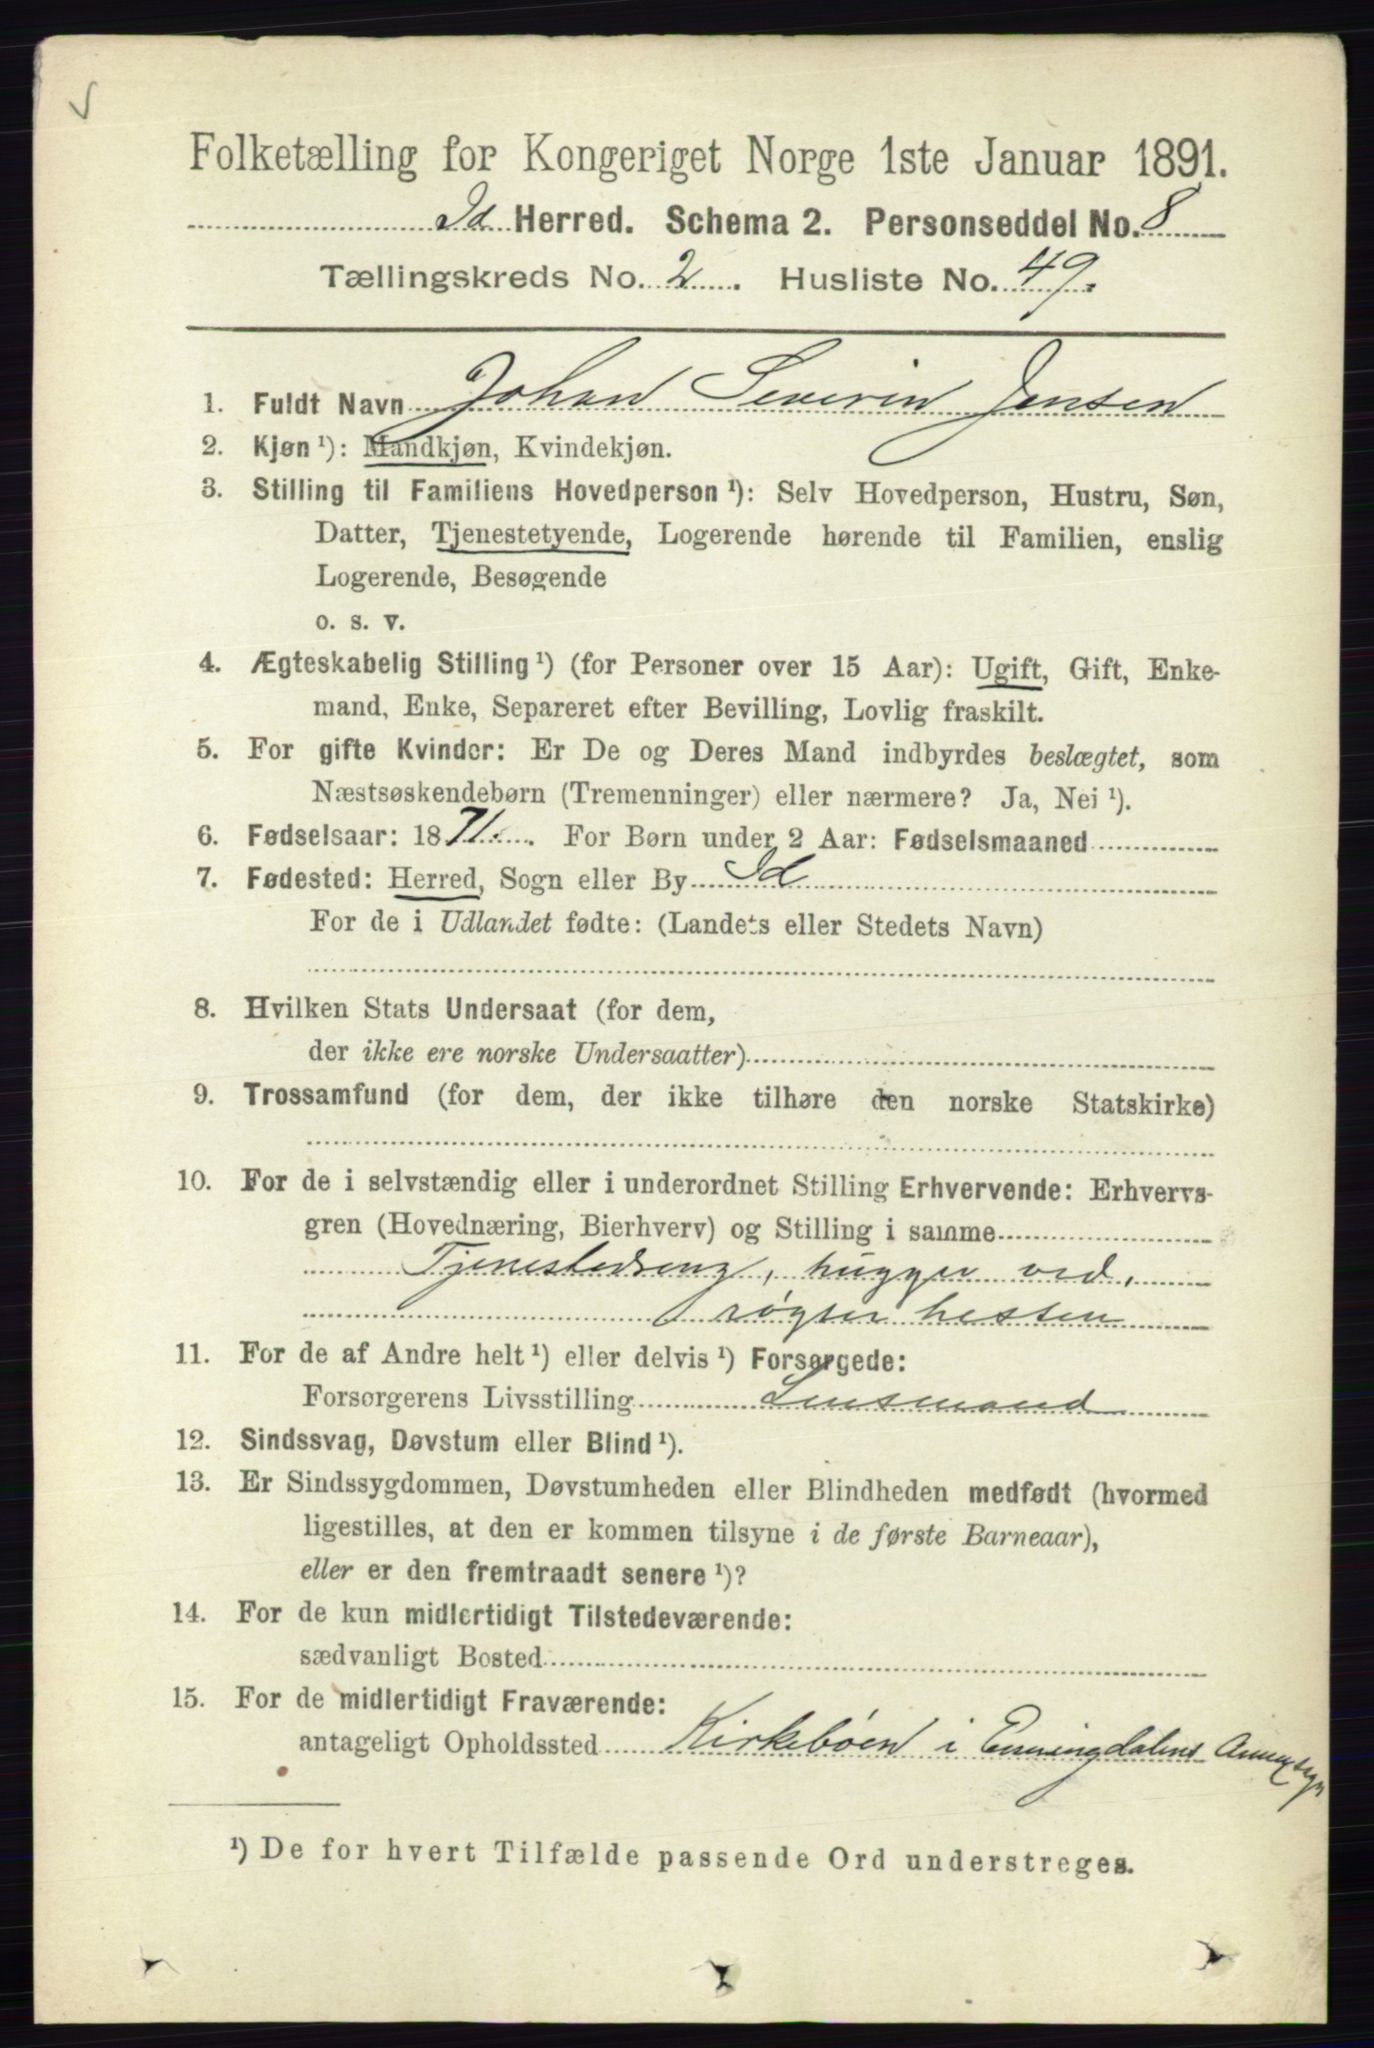 Folketælling for Kongeriget Norge 1ste Januar 1891.
Id Herred. Schema 2. Personseddel No. 8
Tællingskreds No. 2. Husliste No. 49.
1. Fuldt Navn Johan Severin Jensen
2. Kjøn ¹): Mandkjøn, Kvindekjøn.
3. Stilling til Familiens Hovedperson ¹): Selv Hovedperson, Hustru, Søn,
Datter, Tjenestetyende, Logerende hørende til Familien, enslig
Logerende, Besøgende
o. s. v.
4. Ægteskabelig Stilling ¹) (for Personer over 15 Aar): Ugift, Gift, Enke-
mand, Enke, Separeret efter Bevilling, Lovlig fraskilt.
5. For gifte Kvinder: Er De og Deres Mand indbyrdes beslægtet, som
Næstsøskendebørn (Tremenninger) eller nærmere? Ja, Nei ¹).
6. Fødselsaar: 1871. For Børn under 2 Aar: Fødselsmaaned
7. Fødested: Herred, Sogn eller By Id
For de i Udlandet fødte: (Landets eller Stedets Navn)
8. Hvilken Stats Undersaat (for dem,
der ikke ere norske Undersaatter)
9. Trossamfund (for dem, der ikke tilhøre den norske Statskirke)
10. For de i selvstændig eller i underordnet Stilling Erhvervende: Erhvervs-
gren (Hovednæring, Bierhverv) og Stilling i samme
Tjenestedreng, hugger ved,
røgter hesten
11. For de af Andre helt ¹) eller delvis ¹) Forsørgede:
Forsørgerens Livsstilling Lensmand
12. Sindssvag, Døvstum eller Blind ¹).
13. Er Sindssygdommen, Døvstumheden eller Blindheden medfødt (hvormed
ligestilles, at den er kommen tilsyne i de første Barneaar),
eller er den fremtraadt senere ¹)?
14. For de kun midlertidigt Tilstedeværende:
sædvanligt Bosted
15. For de midlertidigt Fraværende:
antageligt Opholdssted Kirkebøen i Enningdalens Annexsogn
¹) De for hvert Tilfælde passende Ord understreges.